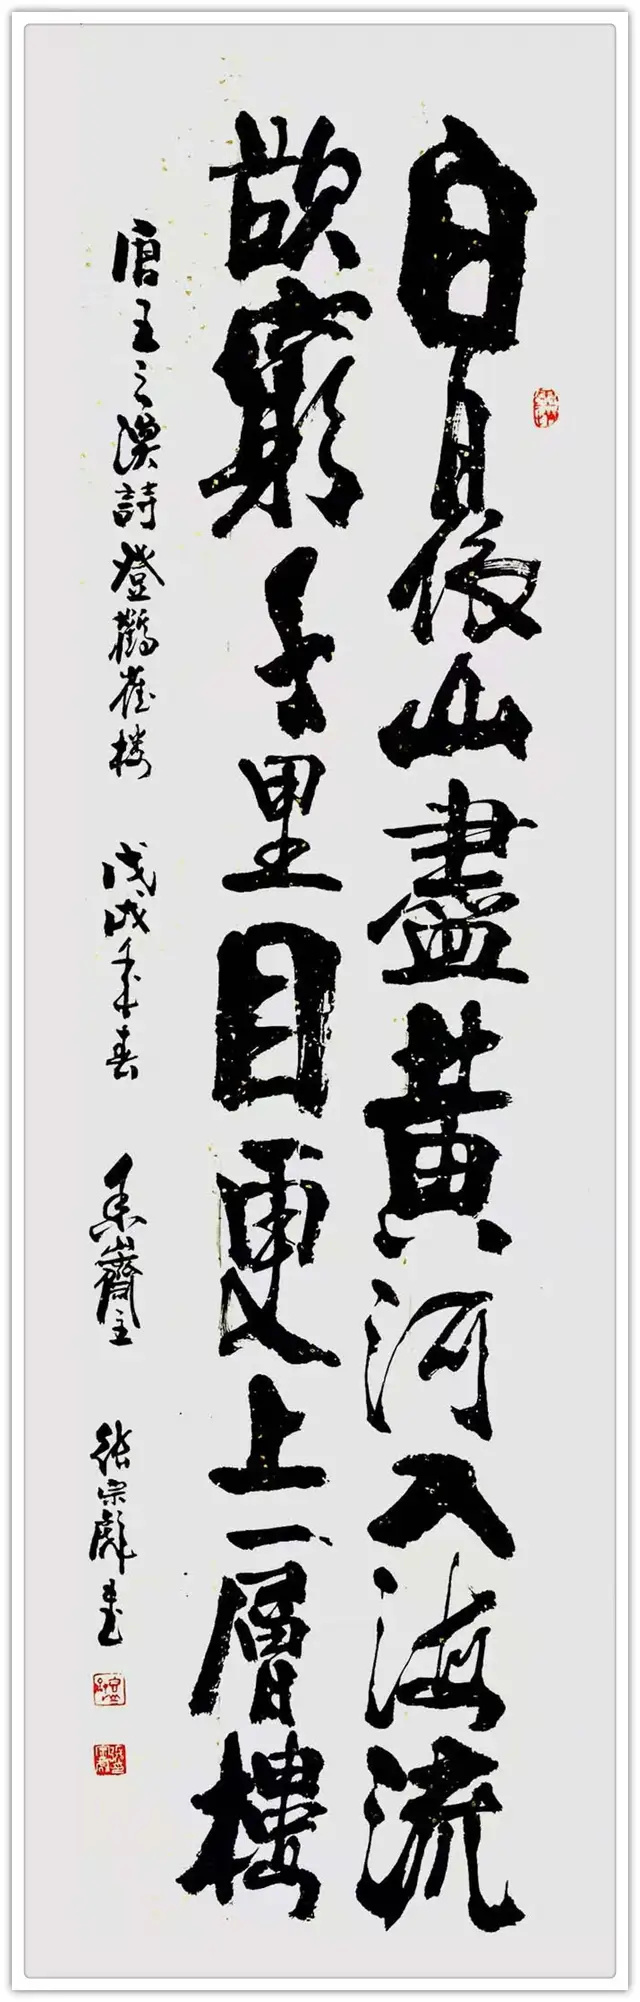 白日依山盡黃河入海流
欲窮千里目更上一層樓
唐王之渙詩登鸛雀楼 戊戌年春 山齋主 張宗彪書